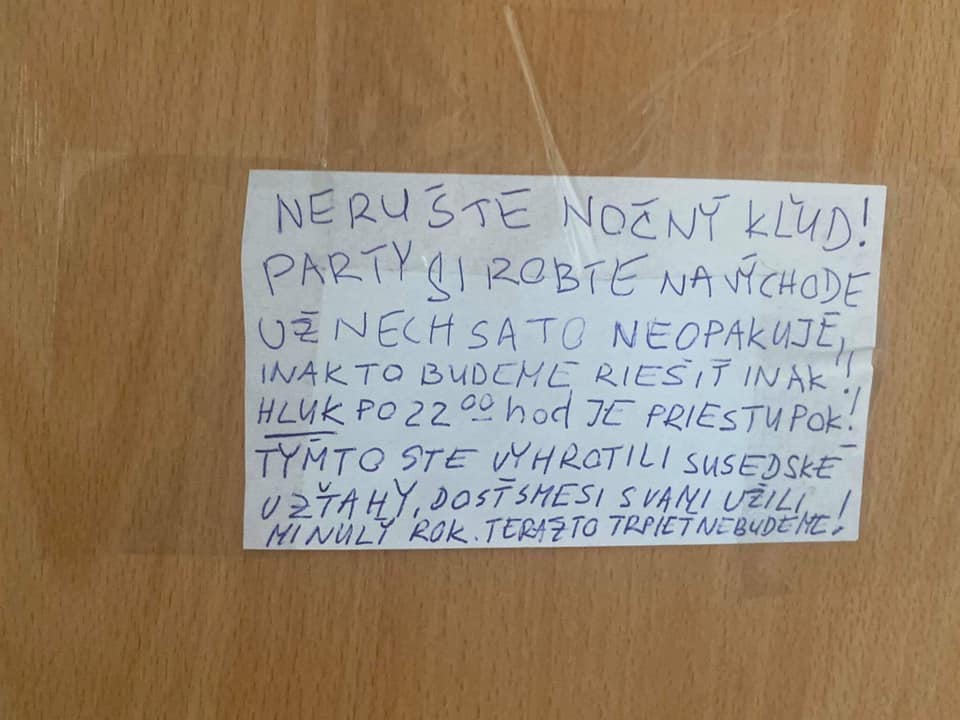 NERUŠTE NOČNÝ KĽUD!
PARTY SI ROBTE NA VÝCHODE
UŽ NECH SA TO NEOPAKUJE,
INAK TO BUDEME RIEŠIŤ INAK!!
HLUK PO 22 00 hod JE PRIESTUPOK!
TÝMTO STE VYHROTILI SUSEDSKÉ
VZŤAHY, DOSŤ SME SI S VAMI UŽILI
MINULÝ ROK. TERAZ TO TRPIEŤ NEBUDEME!